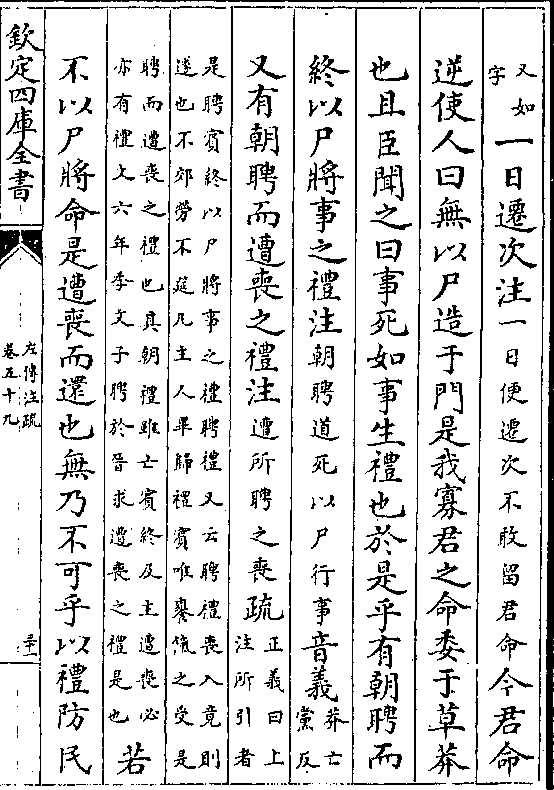 又如字一日遷次注一日便遷次不敢留君命今君命
逆使人曰無以尸造于門是我寡君之命委于草莽
也且臣聞之曰事死如事生禮也於是乎有朝聘而
終以尸將事之禮注朝聘道死以尸行事音義莽亡黨反
又有朝聘而遭喪之禮注遭所聘之喪疏正義曰上注所引者
是聘賓終以尸將事之禮聘禮又云聘禮喪入竟則
遂也不郊勞不筵几主人畢歸禮賓唯饔餼之受是
聘而遭喪之禮也其朝禮雖亡賓終及主遭喪必
亦有禮文六年季文子聘於晉求遭喪之禮是也若
不以尸將命是遭喪而還也無乃不可乎以禮防民
欽定四庫全書
左傳注疏
卷五十九